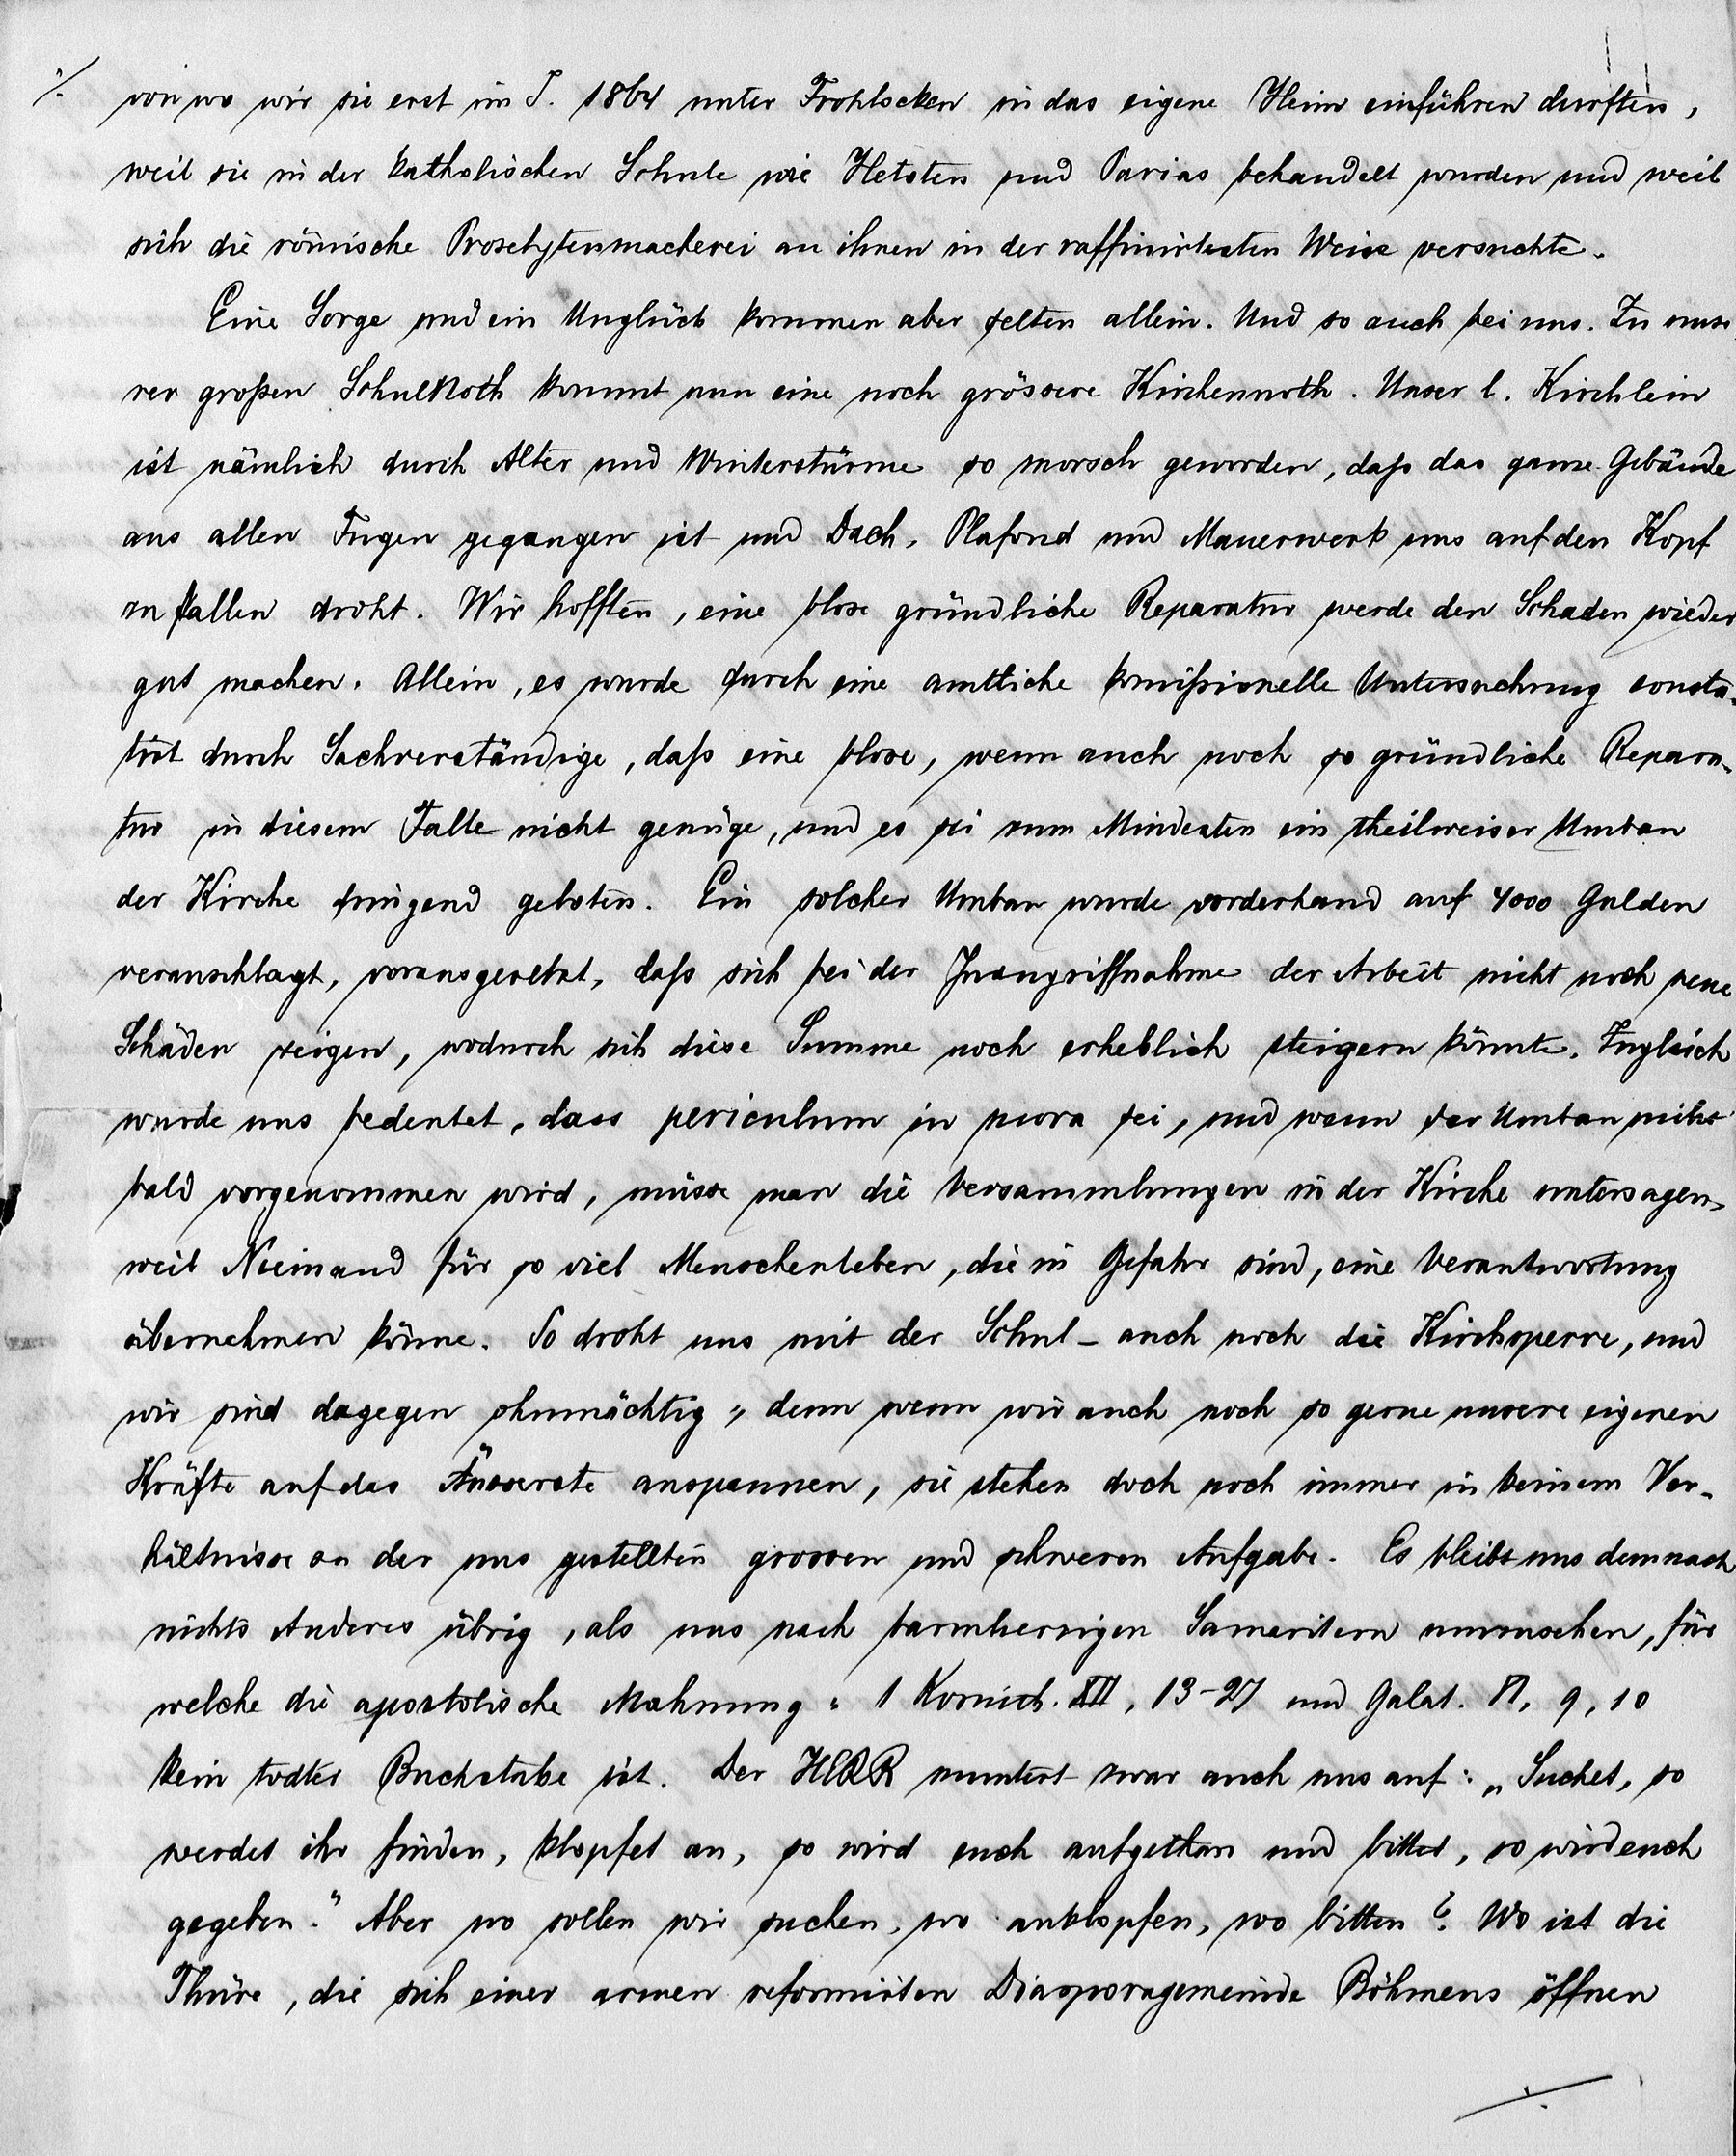 ./. von wo wir sie erst im J. 1864 unter Frohlocken in das eigene Heim einführen durften,
weil sie in der katholischen Schule wie Heloten und Parias behandelt wurden und weil
sich die römische Proselytenmacherei an ihnen in der raffinirtesten Weise versuchte.
Eine Sorge und ein Unglück kommen aber selten allein. Und so auch bei uns. Zu unse
rer großen Schulnoth kommt nun eine noch grössere Kirchennoth. Unser l. Kirchlein
ist nämlich durch Alter und Winterstürme so morsch geworden, daß das ganze Gebäude
aus allen Fugen gegangen ist und Dach, Plafond und Mauerwerk uns auf den Kopf
zu fallen droht. Wir hofften, eine blose gründliche Reparatur werde den Schaden wieder
gut machen. Allein, es wurde durch eine amtliche komißionelle Untersuchung consta-
tirt durch Sachverständige, daß eine blose, wenn auch noch so gründliche Repara-
tur in diesem Falle nicht genüge, und es sei zum Mindesten ein theilweiser Umbau
der Kirche dringend geboten. Ein solcher Umbau wurde vorderhand auf 4000 Gulden
veranschlagt, vorausgesetzt, daß sich bei der Inangriffnahme der Arbeit nicht noch neue
Schäden zeigen, wodurch sich diese Summe noch erheblich steigern könnte. Zugleich
wurde uns bedeutet, dass periculum in mora sei, und wenn der Umbau nicht
bald vorgenommen wird, müsse man die Versammlungen in der Kirche untersagen,
weil Niemand für so viel Menschenleben, die in Gefahr sind, eine Verantwortung
übernehmen könne. So droht uns mit der Schul- auch noch die Kirchsperre, und
wir sind dagegen ohnmächtig; denn wenn wir auch noch so gerne unsere eigenen
Kräfte auf das Äusserste anspannen, sie stehen doch noch immer in keinem Ver-
hältnisse zu der uns gestellten grossen und schweren Aufgabe. Es bleibt uns demnach
nichts Anderes übrig, als uns nach barmherzigen Samaritern umzusehen, für
welche die apostolische Mahnung: 1 Korinth. XII, 13-27 und Galat. VI, 9, 10
kein todter Buchstabe ist. Der HERR muntert zwar auch uns auf: „Suchet, so
werdet ihr finden, klopfet an, so wird euch aufgethan und bittet, so wird euch
gegeben." Aber wo sollen wir suchen, wo anklopfen, wo bitten? Wo ist die
Thüre, die sich einer armen reformirten Diasporagemeinde Böhmens öffnen
./.